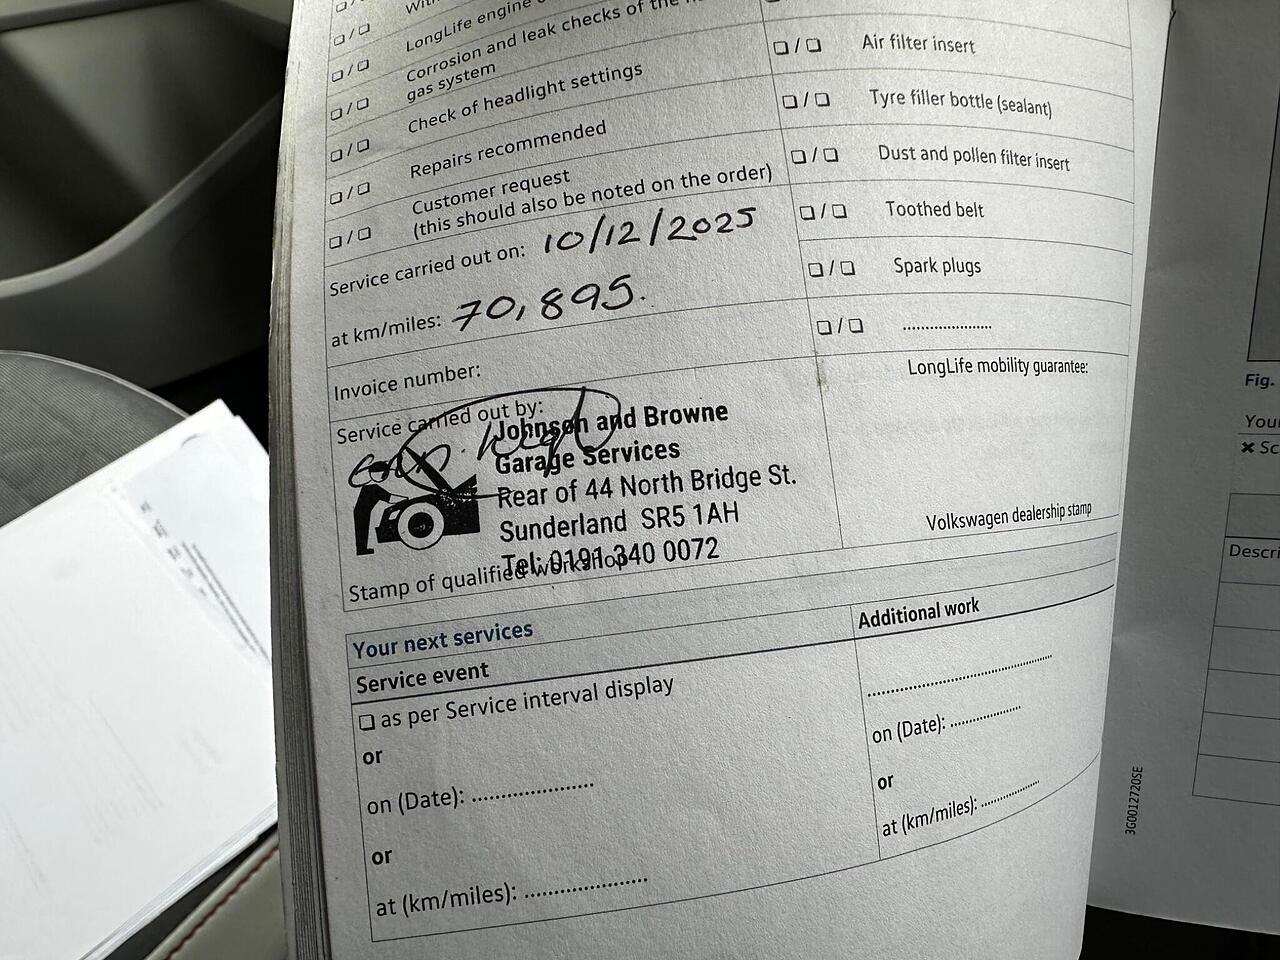 LongLife engine
Corrosion and leak checks of the
gas system
Check of headlight settings
Repairs recommended
Customer request
(this should also be noted on the order)
Service carried out on: 10/12/2025
at km/miles: 70,895.
Invoice number:
Service carried out by:
Johnson and Browne
Garage Services
Rear of 44 North Bridge St.
Sunderland SR5 1AH
Tel: 0191 340 0072
Stamp of qualified workshop
Air filter insert
Tyre filler bottle (sealant)
Dust and pollen filter insert
Toothed belt
Spark plugs
......................
LongLife mobility guarantee:
Volkswagen dealership stamp
Your next services
Service event
as per Service interval display
or
on (Date): ......................
or
at (km/miles): ......................
Additional work
..............................................
on (Date): .................
or
at (km/miles): ..............
3G0012720SE
Fig.
You
✖ Sc
Descri